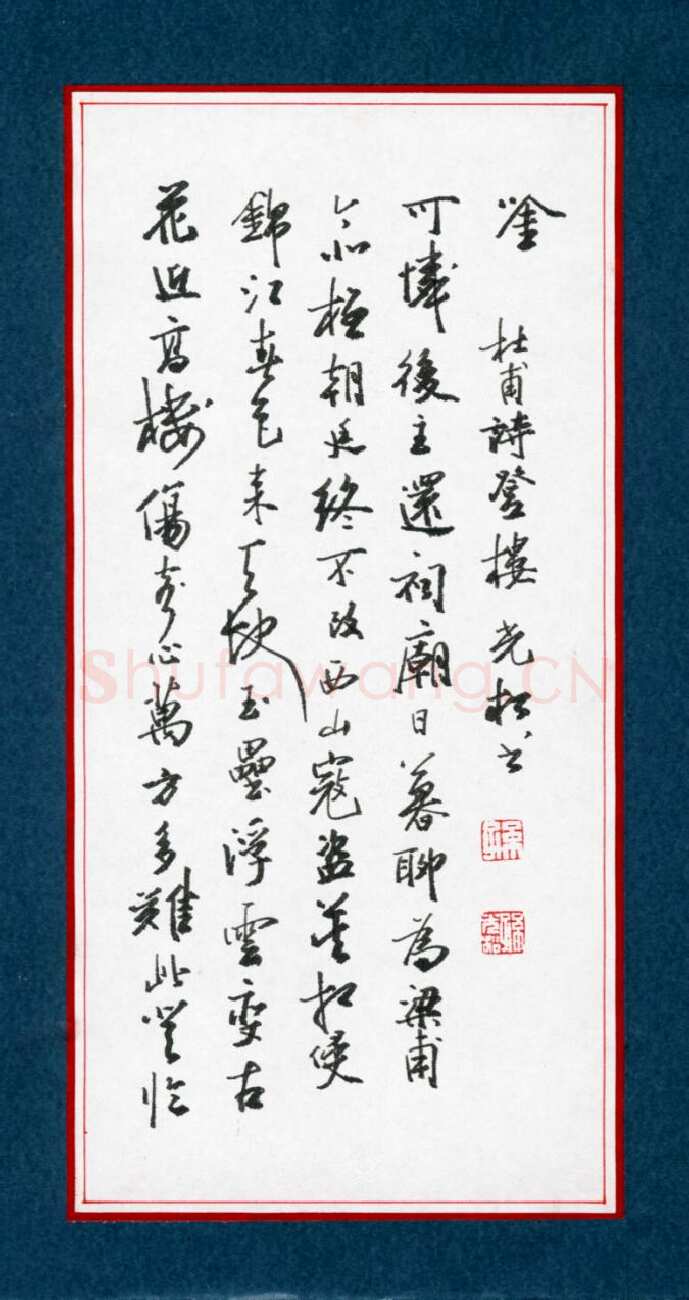 花近高樓傷客心萬方多難此登臨
錦江春色来天地玉壘浮雲變古
今北極朝廷終不改西山寇盜莫相侵
可憐後主還祠廟日暮聊為梁甫
吟 杜甫詩登樓 松书
Shufawang.CN